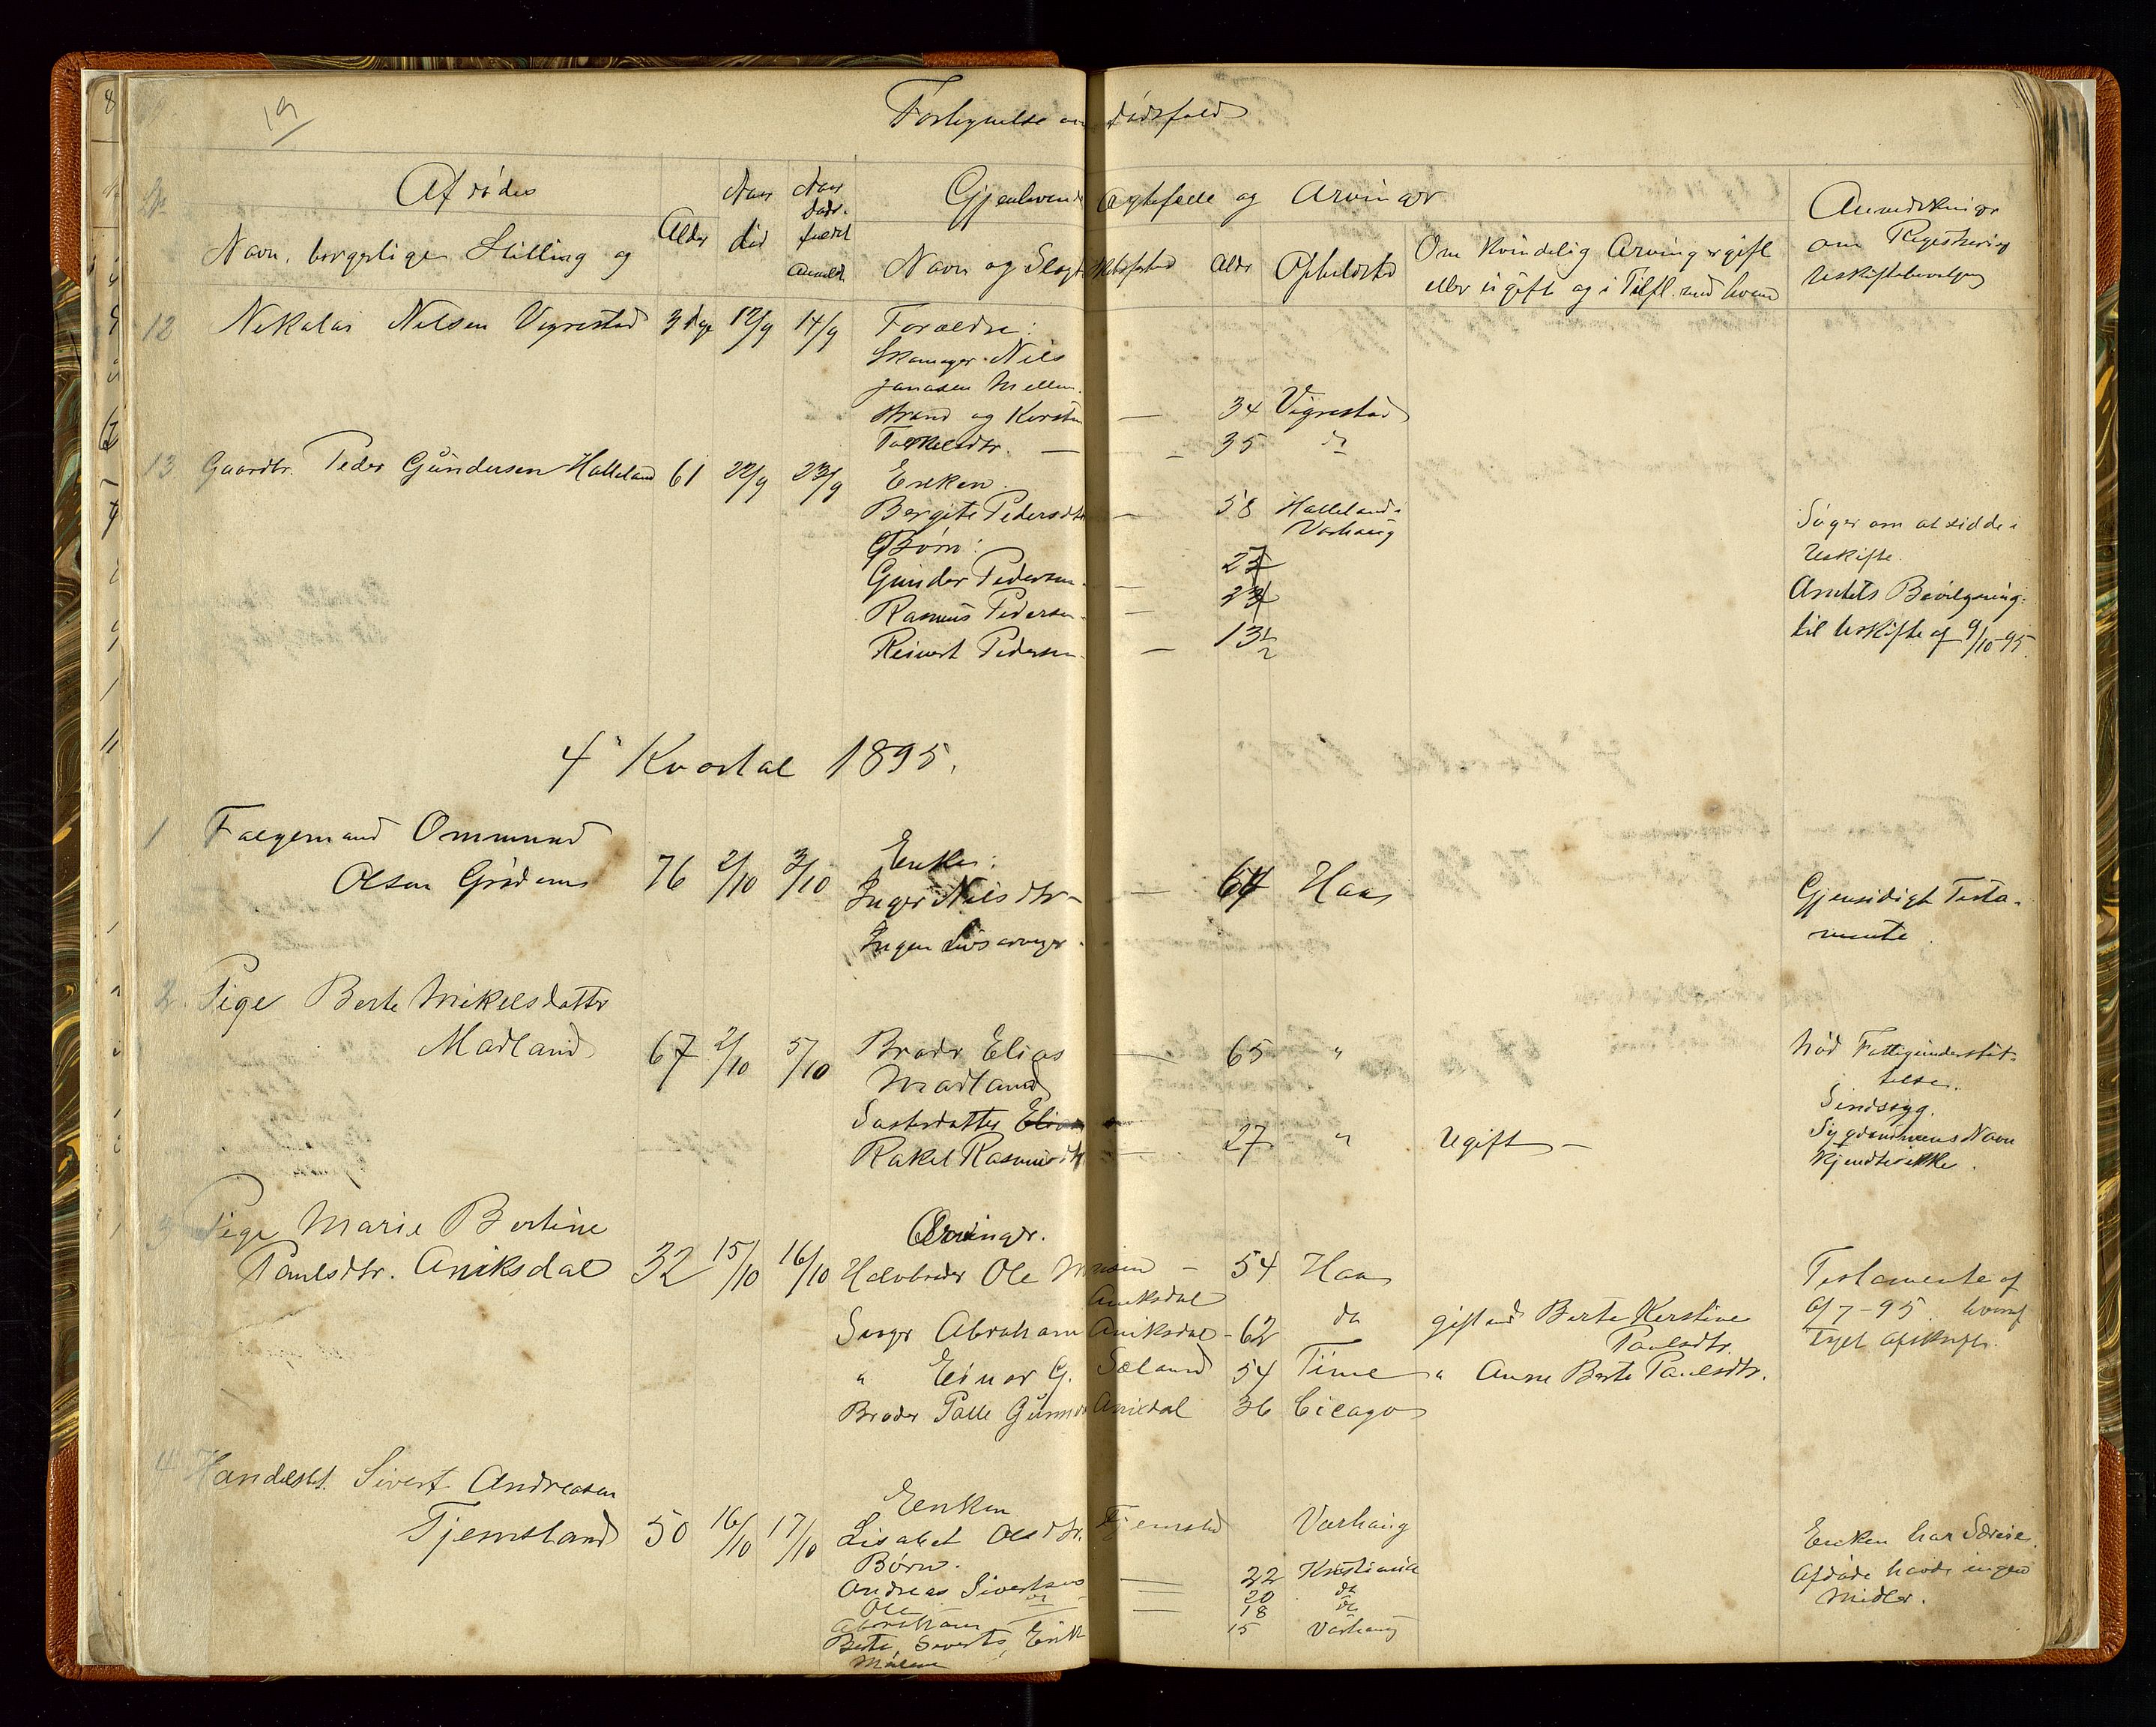 19
Fortegnelse over Dødsfald
Afdødes
Navn, borgerlige Stilling og
Alder
Naar død
Naar Dødsfaldet anmeldt
Gjenlevende Ægtefælle og Arvinger
Navn og Slægtskabsforhold
Alder
Opholdssted
Om kvindelig Arving er gift
eller ugift og i Tilfl. med hvem
Anmærkninger
om Registrering
Uskiftebevilgning
12 Nikolai Nilsen Vigrestad 3 dage 12/9 14/9 Forældre:
Skomager Nils
Jonasen Mellem-
strand og Kirsten — 34 Vigrestad
Torkelsdtr. — 35 do
13 Gaardbr. Peder Gundersen Halleland 61 22/9 23/9 Enken
Bergite Pedersdtr — 58 Halleland
Varhaug
Børn:
Gunder Pedersen —
Rasmus Pedersen —
Reinert Pedersen — 13½
Søger om at sidde i
Uskifte.
Amtets Bevilgning
til Uskifte af 9/10-95.
4de Kvartal 1895.
1 Fælgemand Ommund
Olsen Grødem 76 2/10 3/10 Enke:
Inger Nilsdtr — 64 Haa
Ingen Livsarvinger.
Gjensidigt Testa-
mente.
2 Pige Berte Mikelsdatter
Madland 67 2/10 5/10 Broder Elias — 65 "
Madland
Søsterdatter
Rakel Rasmusdtr — 27 " Ugift —
Nød Fattigunderstøt-
telse.
Sindssyg.
Sygdommens Navn
kjendtes ikke.
3 Pige Marie Bertine
Paulsdtr. Aniksdal 32 15/10 16/10 Arvinger.
Halvbroder Ole — 54 Haa
Aniksdal
Svoger Abraham Aniksdal - 62 do gift med Berte Kerstine
Paulsdtr.
" Einar G. Sæland 54 Time " Anne Berte Paulsdtr.
Broder Palle Aniksdal 36 Cicago
Testamente af
6/7-95 hvoraf
Afskrift.
4 Handelsbt. Sivert Andreasen
Tjemsland 50 16/10 17/10 Enken
Lisabet Olsdtr. Tjemsld Varhaug
Børn.
Andreas Sivertsen — 22 Kristiania
Ole — 20 do
Abraham — 18 do
Berte, Siverts, Erik 15 Varhaug
Malene
Enken har Særeie.
Afdøde havde ingen
Midler.